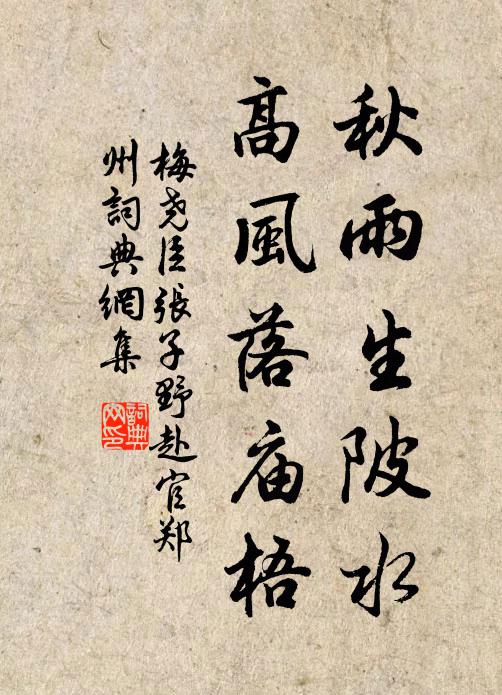 秋雨生陂水
高風落庙梧
梅尧臣張子野赴官郑
州詞典網集
詞典
网印